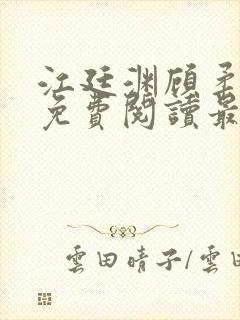 江廷渊顾矛
免費閱讀最
雲田晴子/雲田